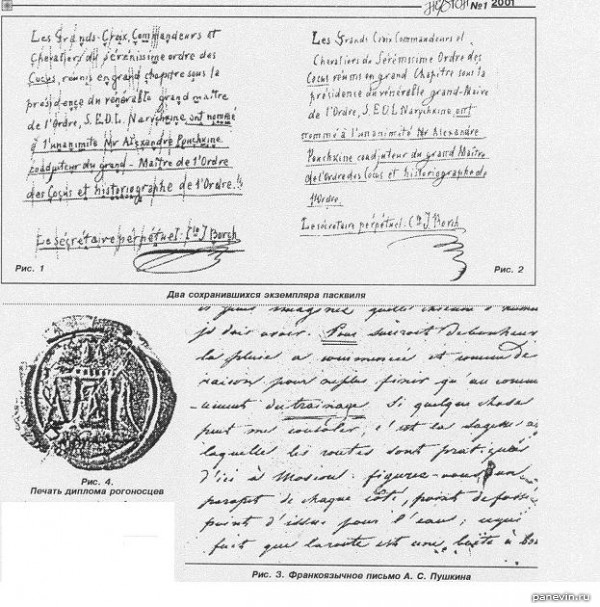 №1 2001
Les Grands-Croix, Commandeurs et
Chevaliers du Sérénissime ordre des
Cocus, réunis en grand chapitre sous la
présidence du vénérable grand-maître
de l'Ordre, S.E.D.L. Narychkine, ont nommé
à l'unanimité Mr Alexandre Pouchkine
coadjuteur du grand-Maître de l'Ordre
des Cocus et historiographe de l'Ordre.
Le sécrétaire perpétuel: C-te J Borch
Рис. 1
Les Grands Croix Commandeurs et
Chevaliers du Sérénissime Ordre des
Cocus réunis en grand Chapitre sous la
présidence du vénérable grand-Maître
de l'Ordre, S.E.D.L. Narychkine ont
nommé à l'unanimité Mr Alexandre
Pouchkine coadjuteur du grand Maître
de l'ordre des Cocus et historiographe de
l'Ordre.
Le sécrétaire perpétuel: C-te J. Borch
Рис. 2
Два сохранившихся экземпляра пасквиля
Рис. 4.
Печать диплома рогоносцев
je dois avoir. Pour surcroît de bonheur
la pluie a commencé et comme de
raison pour ne plus finir qu'au comm
-encement du traînage. Si quelque chose
peut me consoler, c'est la sagesse a
laquelle les routes sont pratiquées
d'ici à Moscou: figurez-vous, un
parapet de chaque côté, point de fossé
point d'issue pour l'eau;
fait que la route est une boîte à
Рис. 3. Франкоязычное письмо А. С. Пушкина
panevin.ru